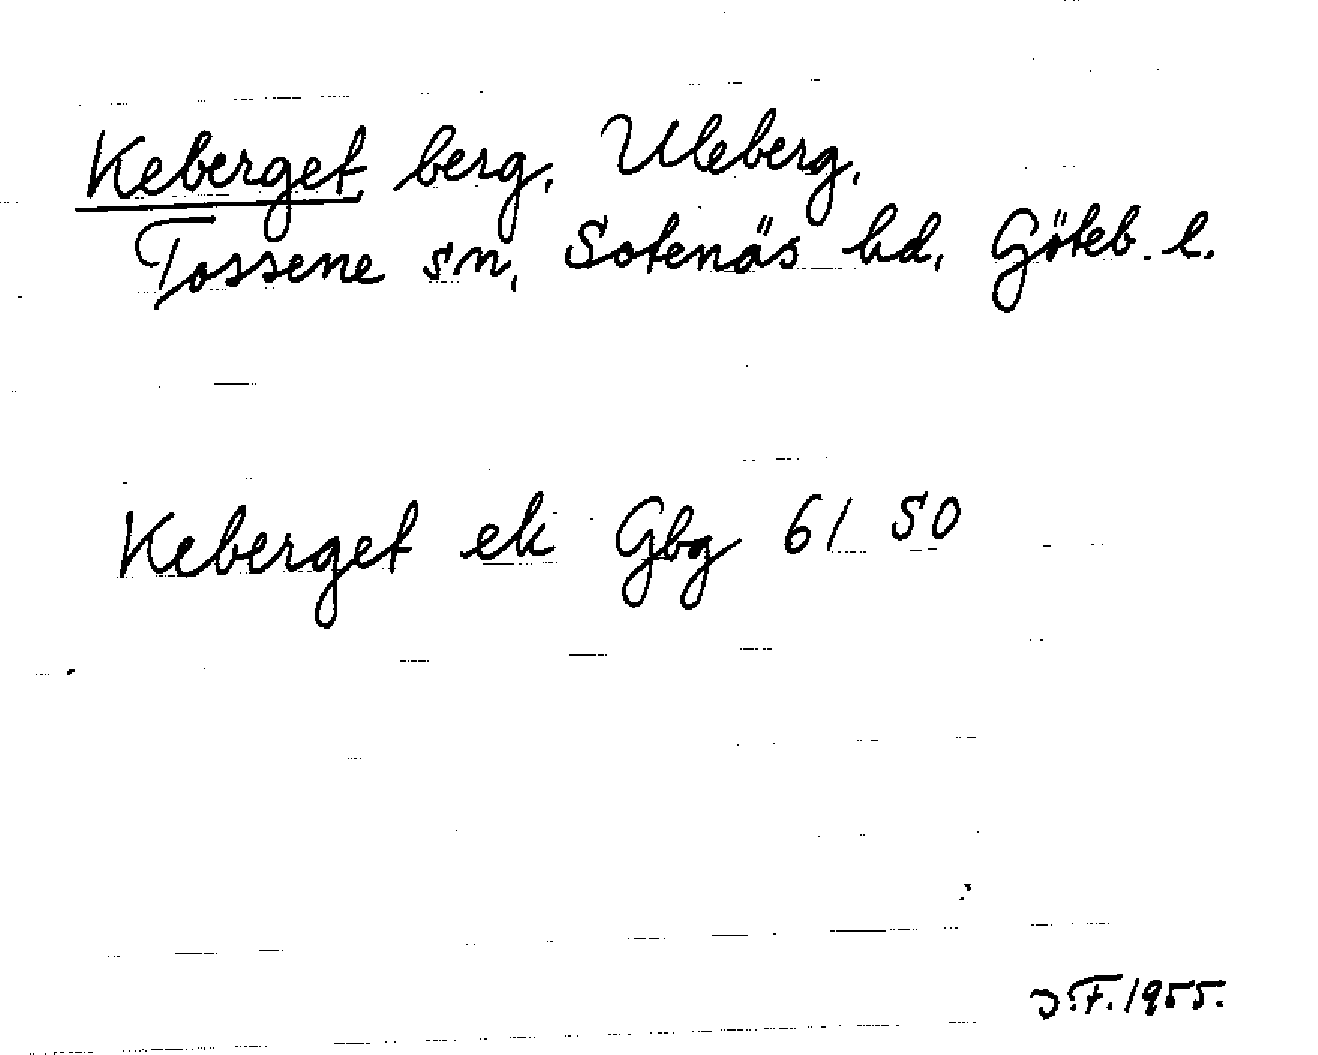 Keberget, berg, Uleberg,
Tossene sn, Sotenäs hd, Göteb. l.
Keberget ek Gbg 61 50
J.F. 1955.